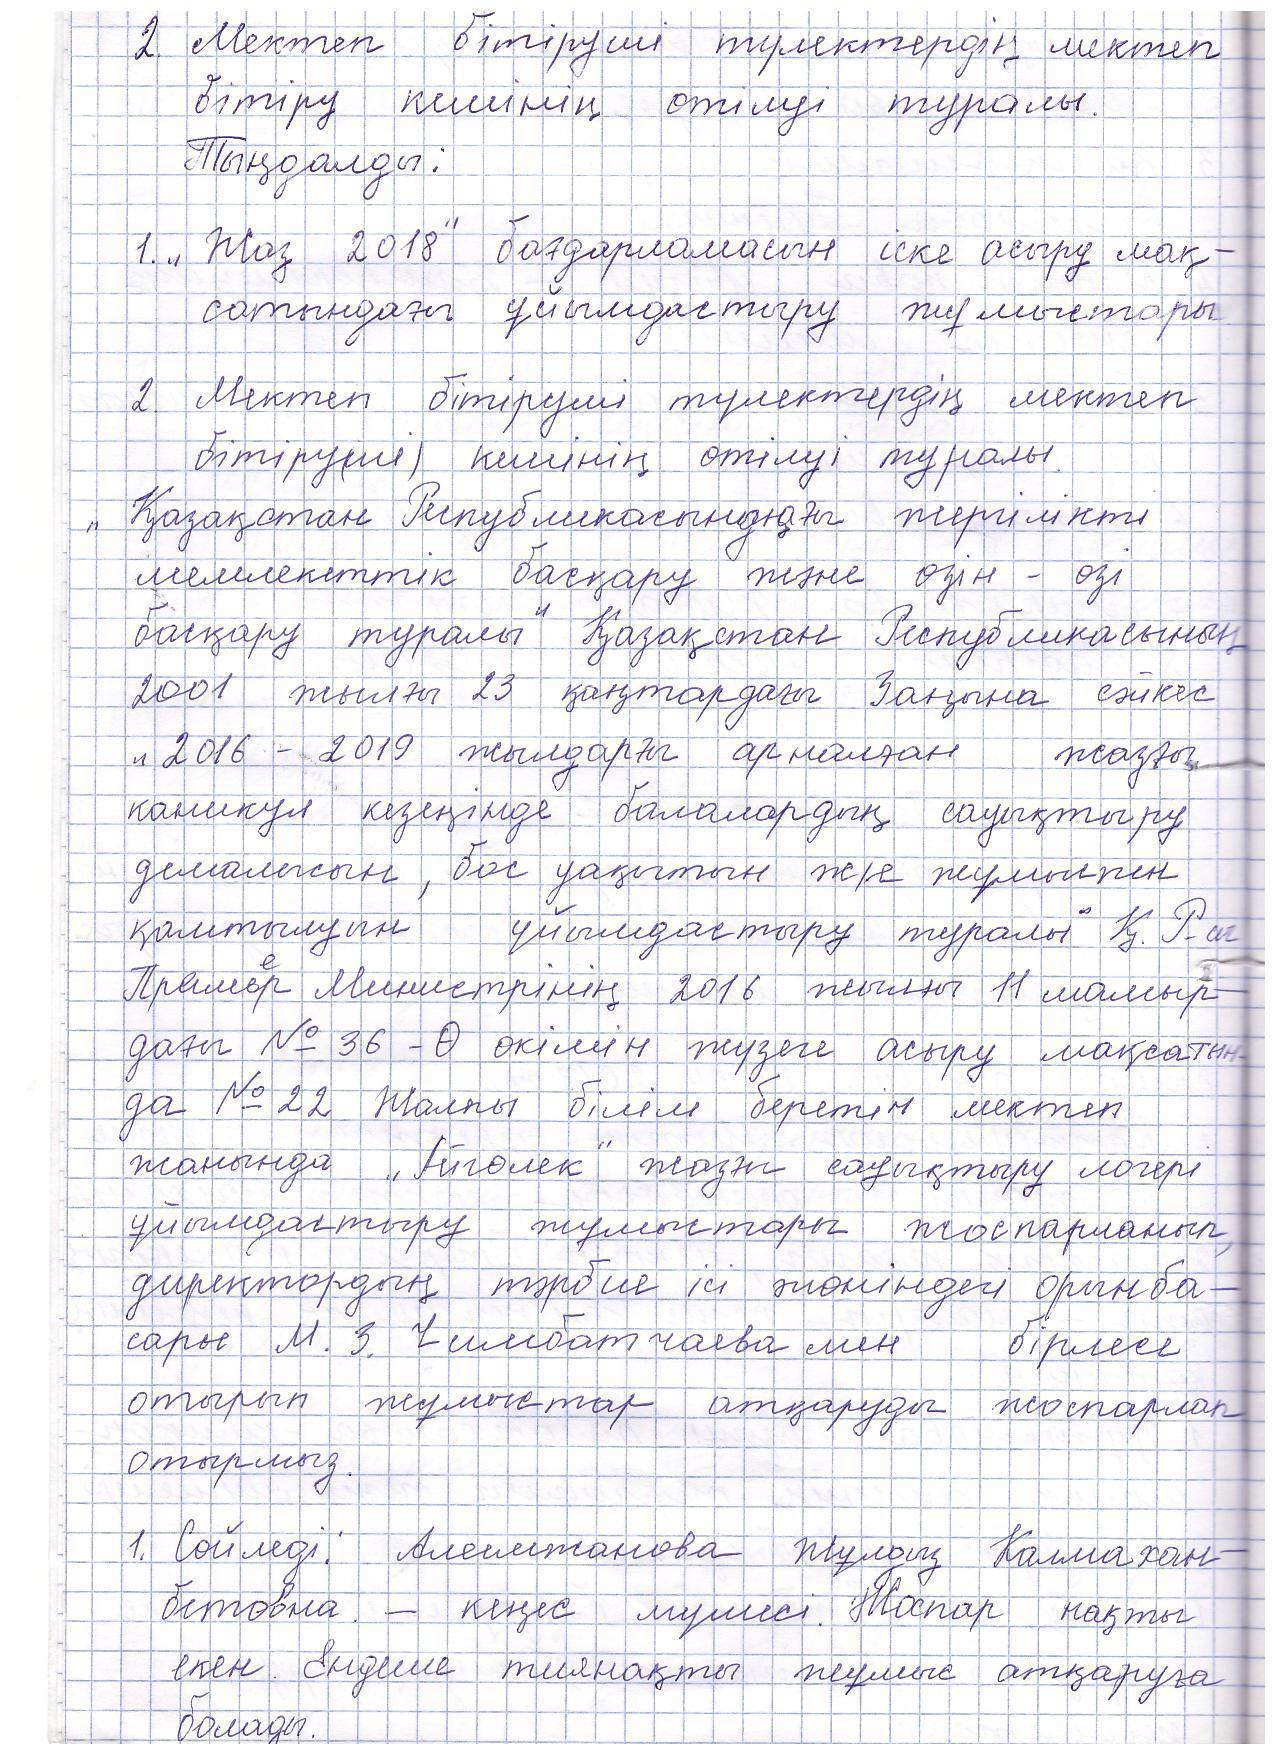 2. Мектеп бітіруші түлектердің мектеп
бітіру кешінің өтілуі туралы.
Тыңдалды:
1. „Жаз 2018" бағдарламасын іске асыру мақ-
сатындағы ұйымдастыру жұмыстары
2. Мектеп бітіруші түлектердің мектеп
бітіру(ші) кешінің өтілуі туралы.
„Қазақстан Республикасындағы жергілікті
мемлекеттік басқару және өзін - өзі
басқару туралы" Қазақстан Республикасының
2001 жылғы 23 қаңтардағы Заңына сәйкес
„2016 - 2019 жылдарғы арналған жазғы
каникул кезеңінде балалардың сауықтыру
демалысын, бос уақытын және жұмыспен
қамтылуын ұйымдастыру туралы" Қ. Р-сы
Премьер Министрінің 2016 жылғы 11 мамыр-
дағы № 36 -Ө өкімін жүзеге асыру мақсатын-
да № 22 Жалпы білім беретін мектеп
жанында „Айгөлек" жазғы сауықтыру лагері
ұйымдастыру жұмыстары жоспарланып,
директордың тәрбие ісі жөніндегі орынба-
сары М. З. Чимбатчаева мен бірлесе
отырып жұмыстар атқаруды жоспарлап
отырмыз.
1. Сөйледі: Алешжанова Жұлдыз Калмахан-
бетовна. - кеңес мүшесі. Жоспар нақты
екен. Ендеше тиянақты жұмыс атқаруға
болады.